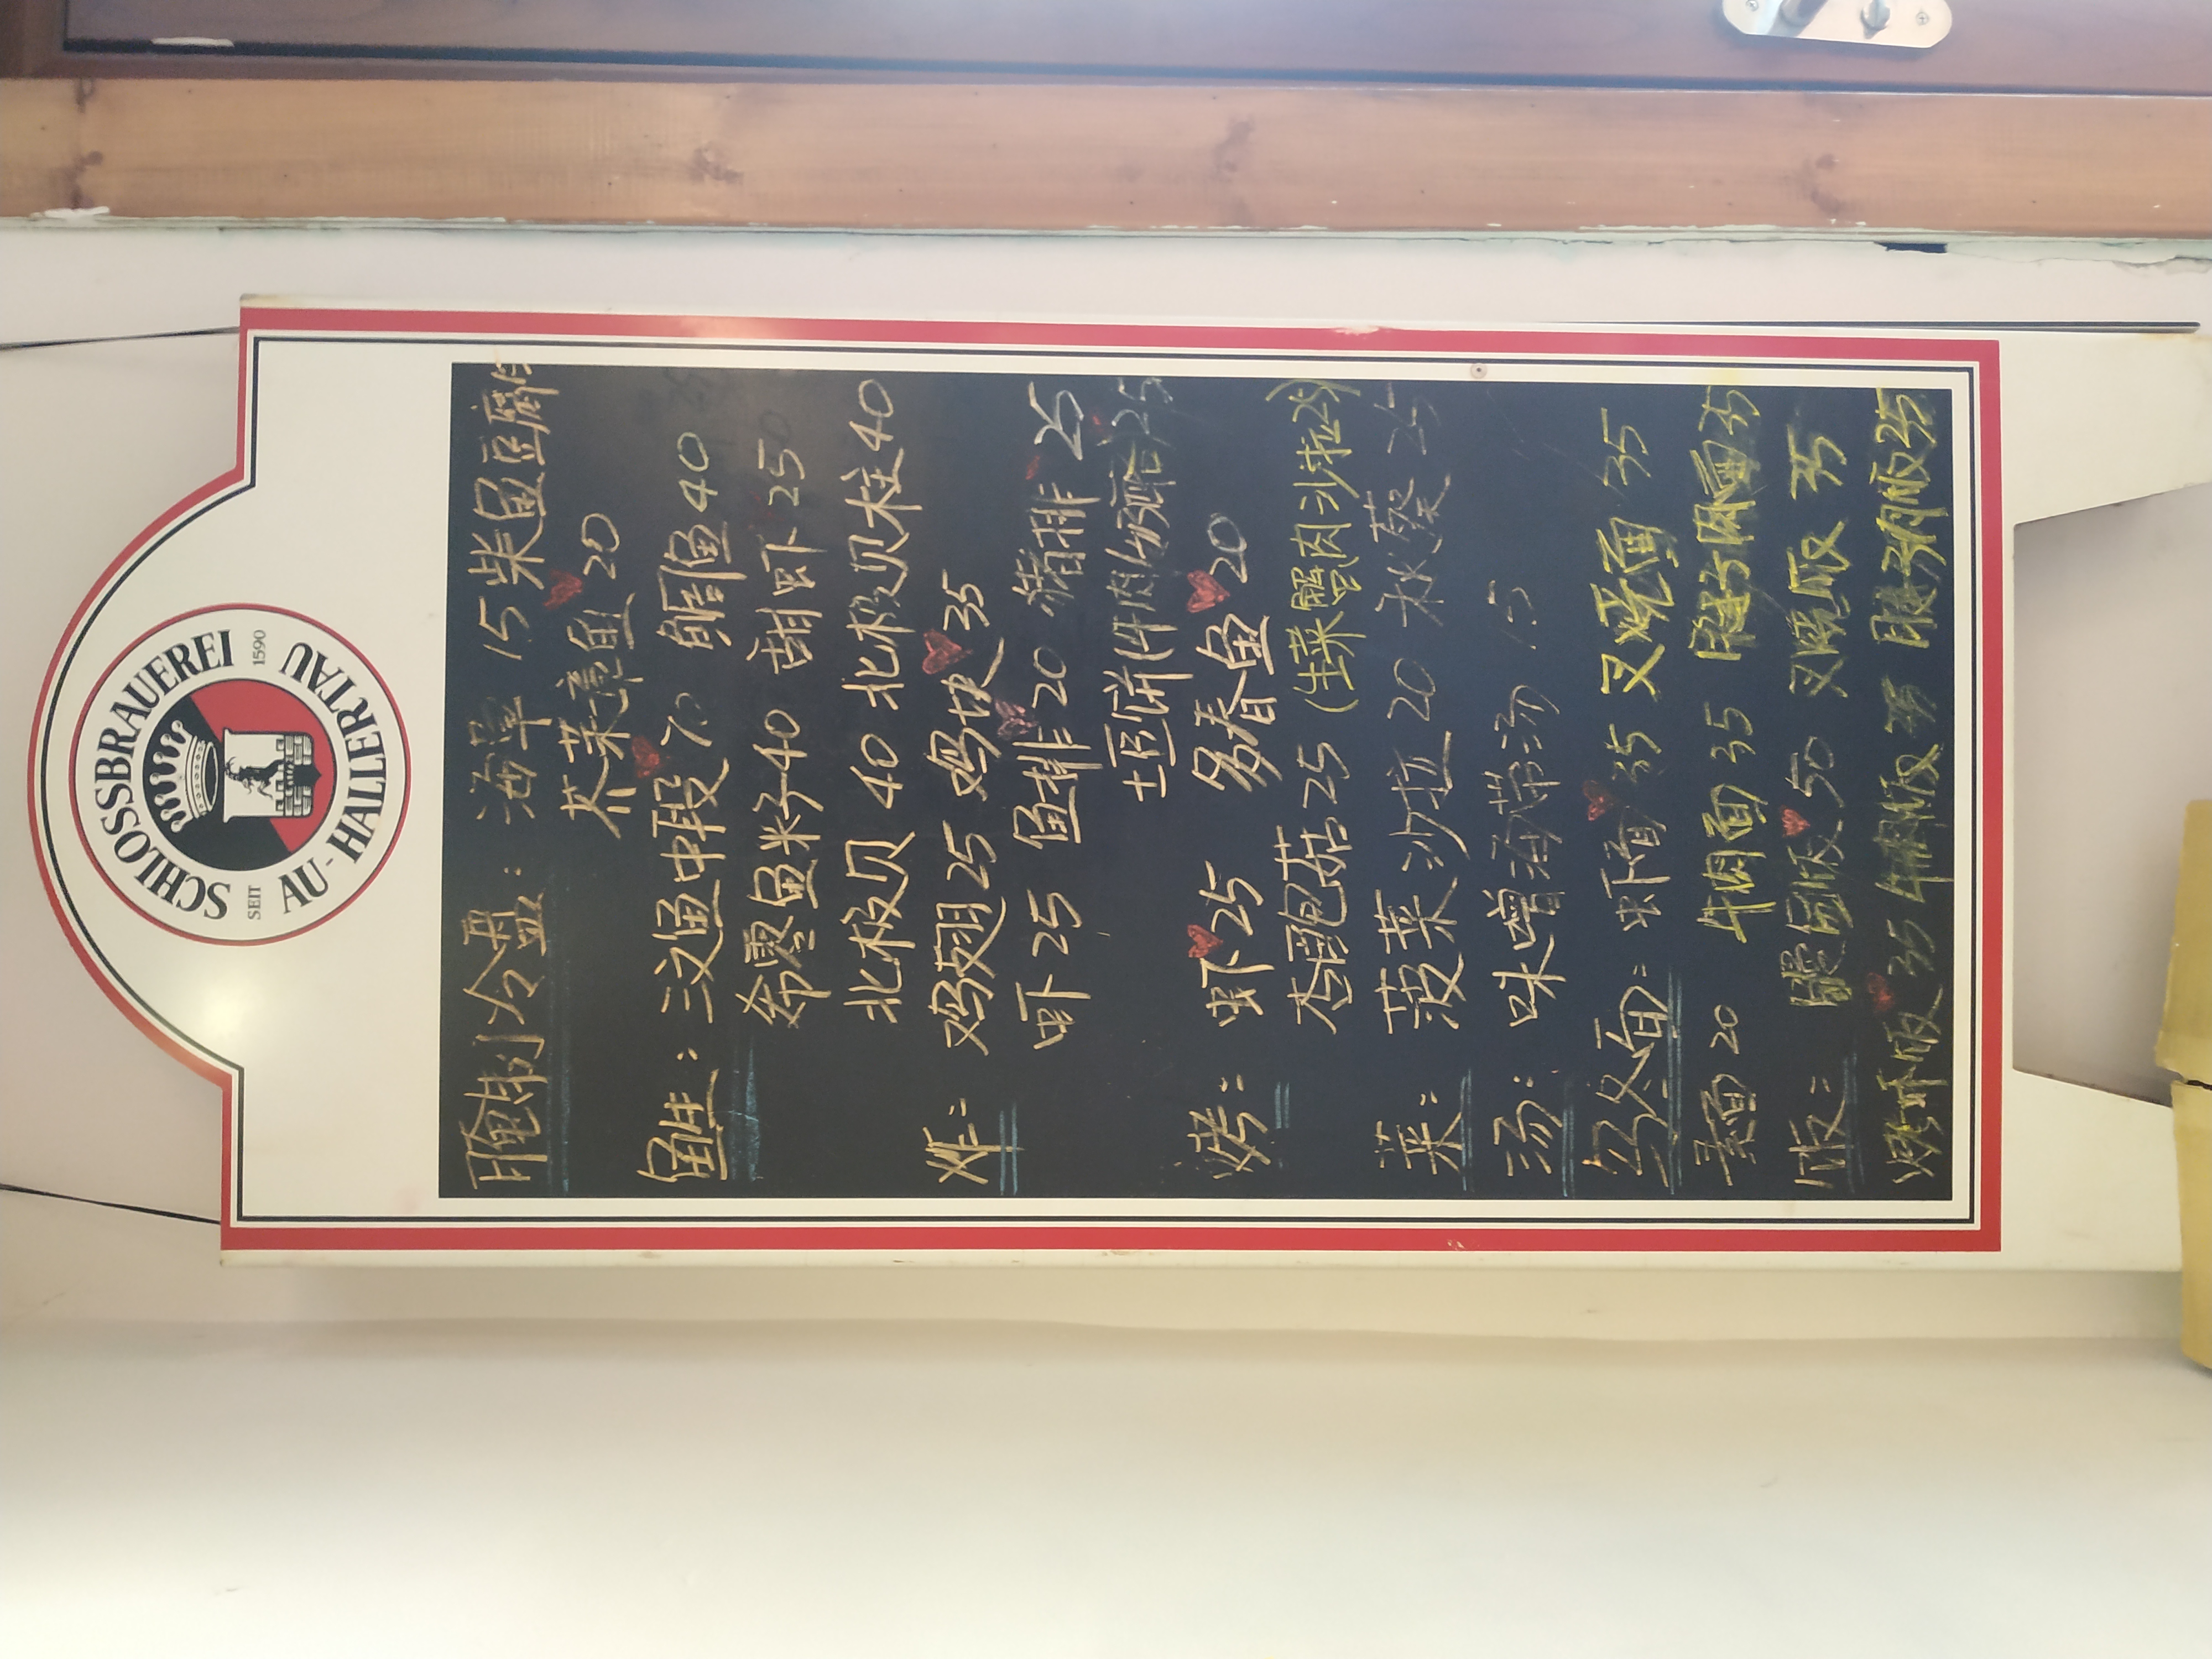 SCHLOSSBRAUEREI
SEIT 1590
AU-HALLERTAU
腌制冷盘: 海草 15 柴鱼豆腐
芥茉章鱼 20
鱼生: 三文鱼中段 70 鲷鱼 40
希零鱼籽 40 甜虾 25
北极贝 40 北极贝柱 40
炸: 鸡翅 25 鸡块 35
虾 25 鱼排 20 猪排 25
土豆饼(牛肉/奶酪) 25
烤: 虾 25 多春鱼 20
杏鲍菇 25 (生菜蟹肉沙拉 25)
菜: 菠菜沙拉 20 秋葵 25
汤: 味噌海带汤 15
乌冬面: 虾面 35 叉烧面 35
素面 20 牛肉面 35 腱子肉面 35
饭: 鳗鱼饭 50 叉烧饭 35
烤虾饭 35 牛肉饭 35 腱子肉饭 35